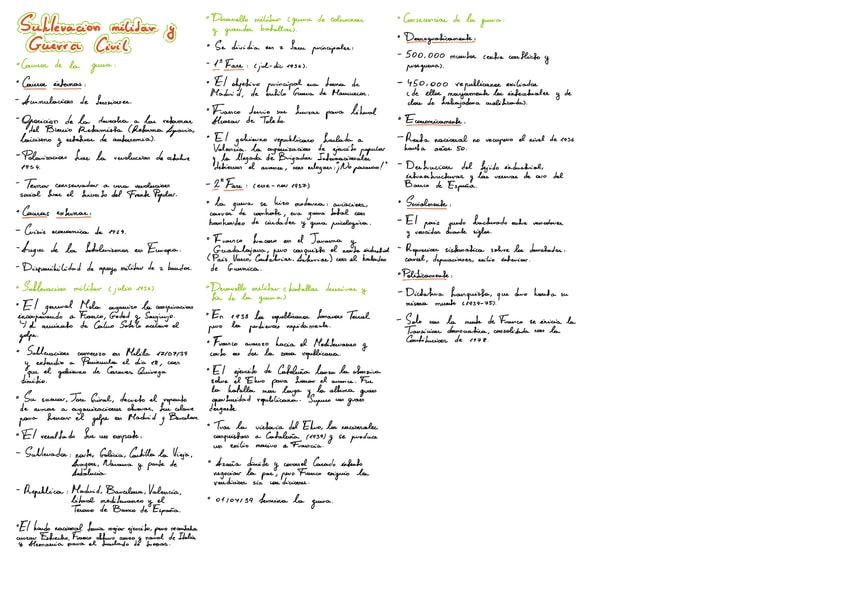 Sublevación militar y
Guerra Civil
• Causas de la guerra:
• Causas internas:
- Acumulación de tensiones.
- Oposición de la derecha a las reformas
del Bienio Reformista (Reforma Agraria,
laicismo y estatuos de autonomía).
- Polarización tras la revolución de octubre
1934.
- Temor conservador a una revolución
social tras el triunfo del Frente Popular.
• Causas externas:
- Crisis económica de 1929.
- Auge de los totalitarismos en Europa.
- Disponibilidad de apoyo militar de 2 bandos.
• Sublevación militar (julio 1936).
• El general Mola organizó la conspiración
incorporando a Franco, Goded y Sanjurjo.
Y el asesinato de Calvo Sotelo aceleró el
golpe.
• Sublevación comenzó en Melilla 17/07/39
y extendió a Península el día 18, con
que el gobierno de Casares Quiroga
dimitió.
• Su sucesor, Jose Giral, decretó el reparto
de armas a organizaciones obreras, fue clave
para frenar el golpe en Madrid y Barcelona.
• El resultado fue un empate:
- Sublevados: norte, Galicia, Castilla la Vieja,
Aragón, Navarra y parte de
Andalucía.
- República: Madrid, Barcelona, Valencia,
litoral mediterraneo y el
Tesoro de Banco de España.
• El bando nacional tenía mejor ejército, pero necesitaba
cruzar Estrecho, Franco obtuvo aéreo y naval de Italia
y Alemania para el traslado de tropas.
• Desarrollo militar (guerra de columnas
y grandes batallas).
• Se dividía en 2 fases principales:
- 1ª Fase: (jul-dic 1936).
• El objetivo principal era toma de
Madrid, de estilo Guerra de Marruecos.
Franco desvió sus fuerzas para liberar
Alcazar de Toledo
• El gobierno republicano traslada a
Valencia. La organización de ejército popular
y la llegada de Brigadas Internacionales
detuvieron el avance, con eslogan: "¡No pasarán!"
- 2ª Fase: (ene-nov 1937)
• La guerra se hizo moderna: aviación,
carros de combate, era guerra total con
bombardeos de ciudades y guerra psicológica.
• Franco fracasó en el Jarama y
Guadalajara, pero conquistó el norte industrial
(País Vasco, Cantabria, Asturias) con el bombardeo
de Guernica.
• Desarrollo militar (batallas decisivas y
fin de la guerra)
• En 1938 los republicanos tomaron Teruel
pero la perdieron rápidamente.
• Franco avanzó hacia el Mediterraneo y
cortó en dos la zona republicana.
• El ejército de Cataluña lanzó la ofensiva
sobre el Ebro para frenar el avance. Fue
la batalla más larga y la última gran
oportunidad republicana. Supuso un gran
desgaste.
• Tras la victoria del Ebro, los nacionales
conquistaron a Cataluña (1939) y se produce
un exilio masivo a Francia.
• Azaña dimite y coronel Casado intenta
negociar la paz, pero Franco exigió la
rendición sin condiciones.
• 01/04/39 termina la guerra.
• Consecuencias de la guerra:
• Demográficamente:
- 500.000 muertes (entre conflicto y
posguerra).
- 450.000 republicanos exiliados
(de ellos mayormente los intelectuales y de
clase de trabajadora cualificada).
• Económicamente:
- Renta nacional no recuperó el nivel de 1936
hasta años 50.
- Destrucción del tejido industrial,
infraestructuras y las reservas de oro del
Banco de España.
• Socialmente:
- El país quedó fracturado entre vencedores
y vencidos durante siglos.
- Represión sistemática sobre los derrotados:
cárcel, depuraciones, exilio exterior.
• Políticamente:
- Dictadura franquista, que duró hasta su
misma muerte (1939-75)
- Solo con la muerte de Franco se inicia la
Transición democrática, consolidada con la
Constitución de 1978.